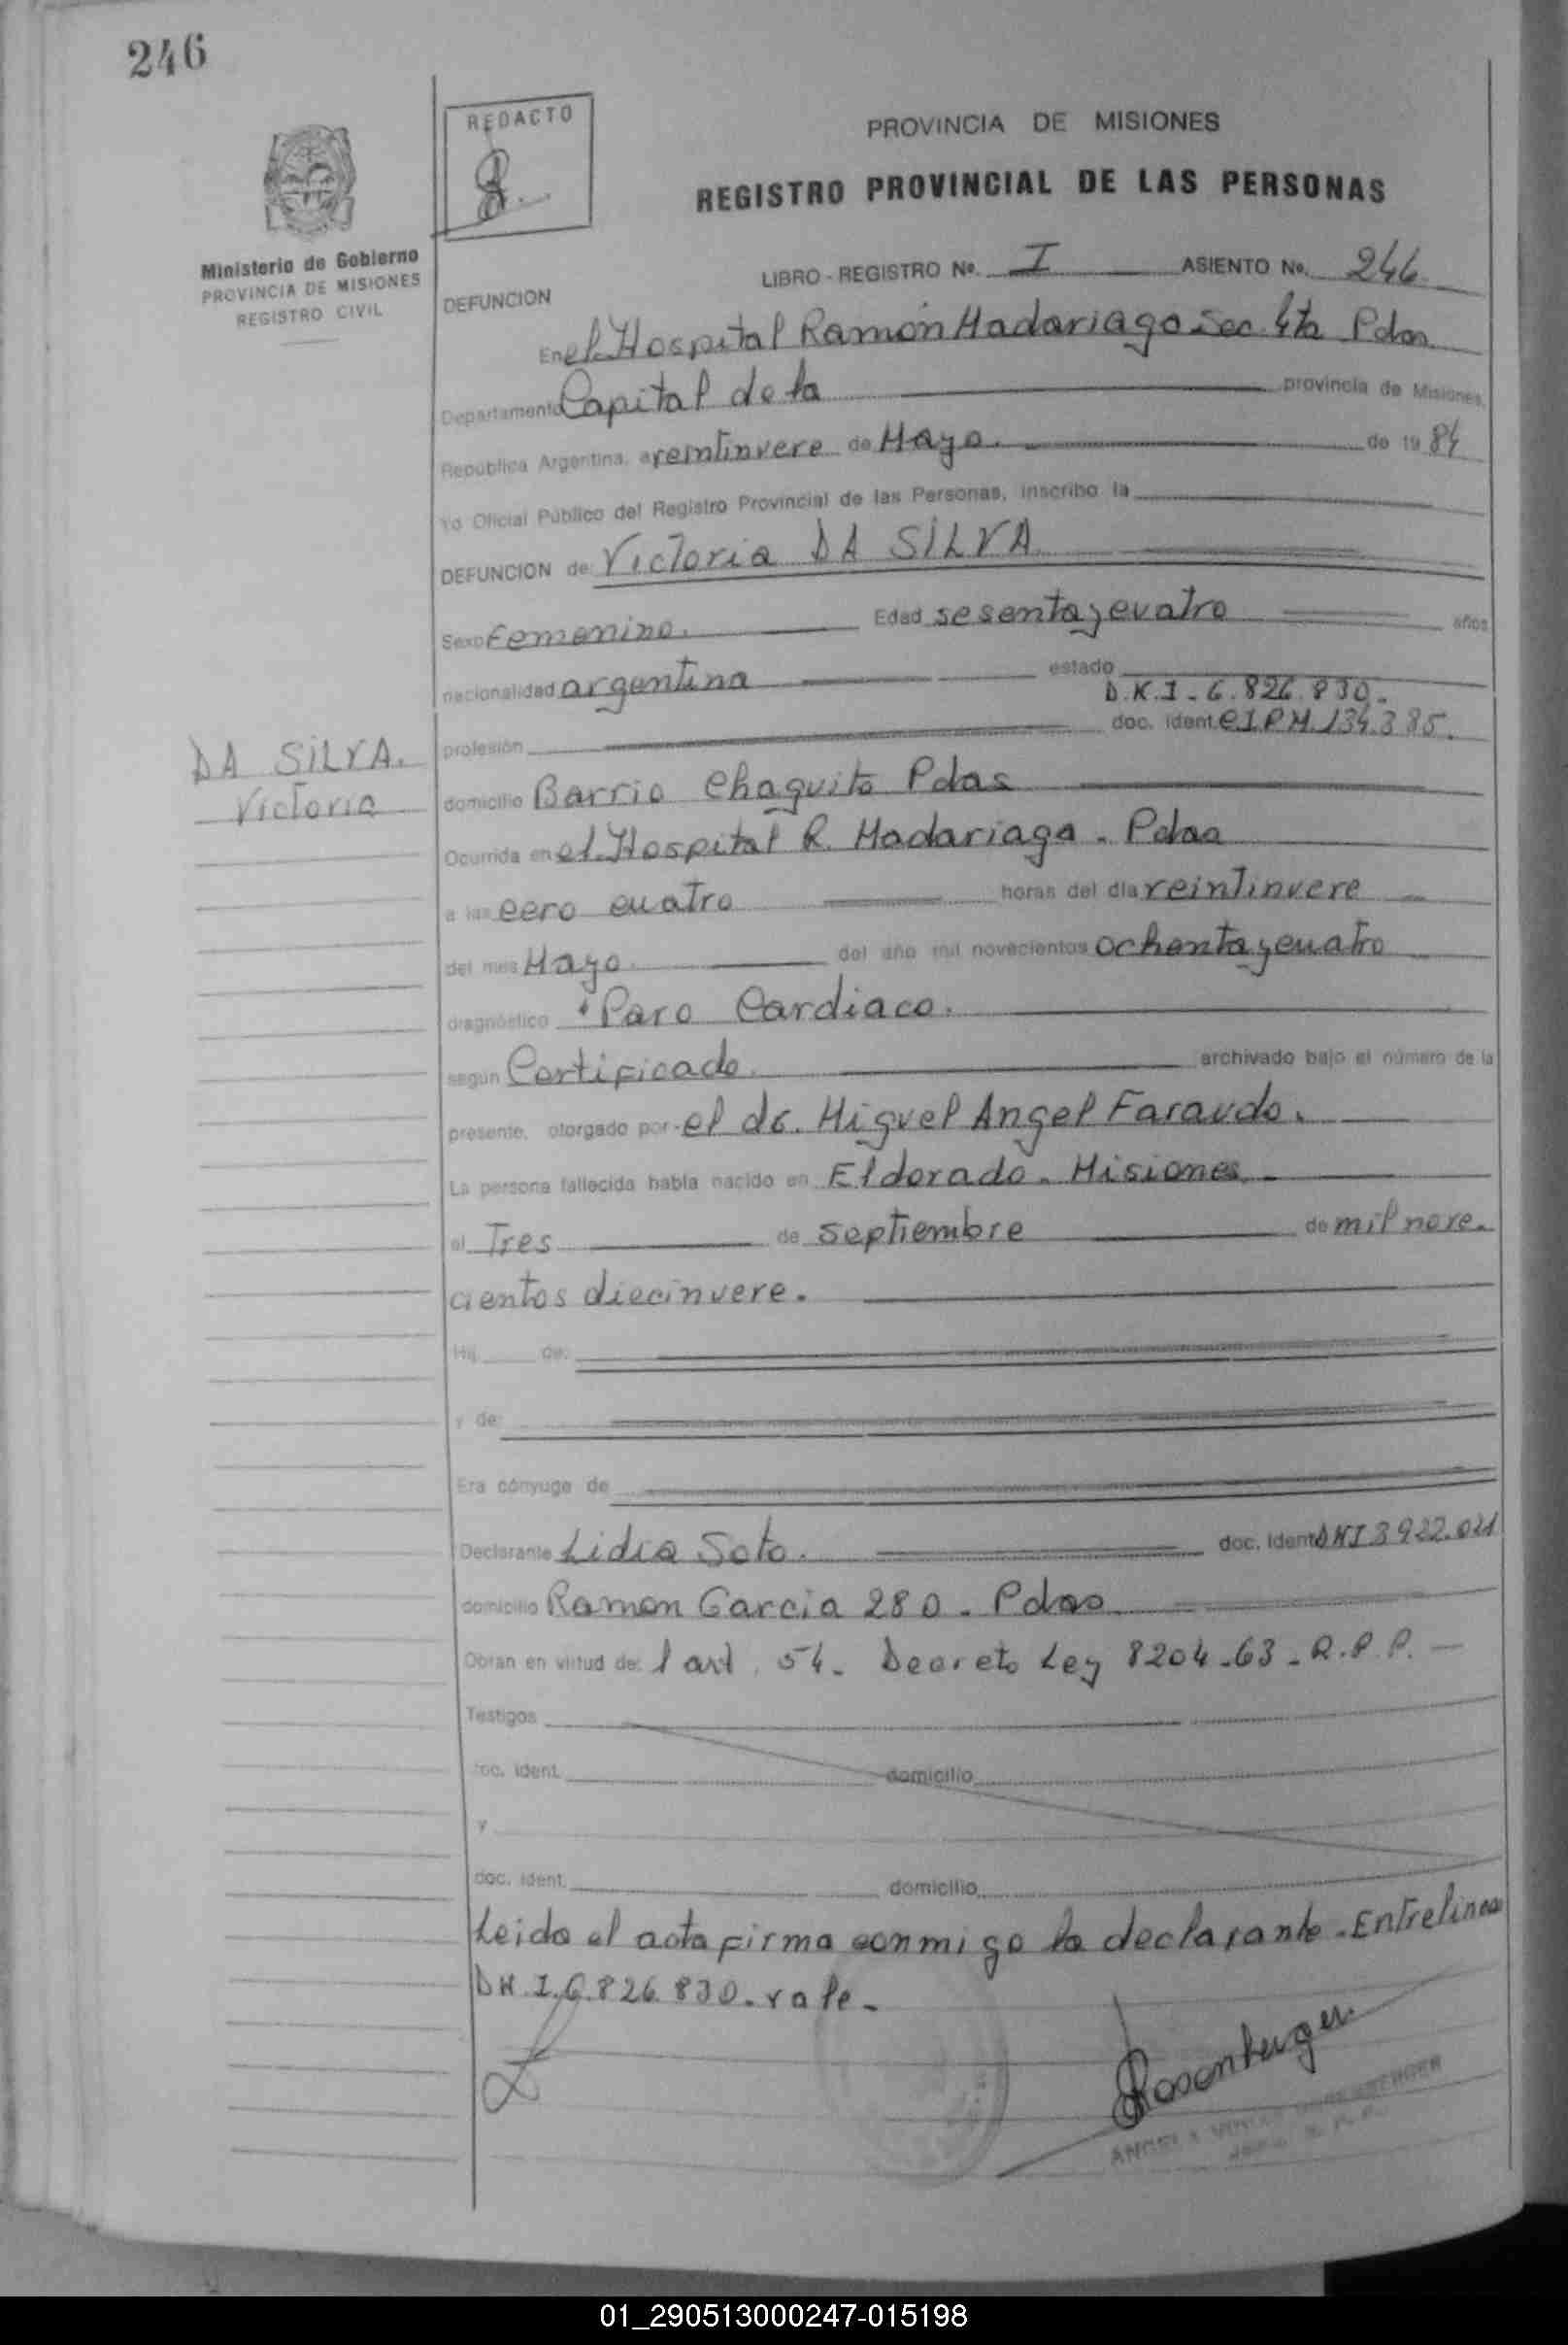 246
REDACTO
PROVINCIA DE MISIONES
REGISTRO PROVINCIAL DE LAS PERSONAS
Ministerio de Gobierno
PROVINCIA DE MISIONES
REGISTRO CIVIL
LIBRO - REGISTRO Nº. I ASIENTO No. 246
DEFUNCION
En el Hospital Ramón Madariaga Sec. 4ta Pdas.
Departamento Capital de la provincia de Misiones,
República Argentina, a veintinueve de Mayo. de 1984
Yo Oficial Público del Registro Provincial de las Personas, inscribo la
DEFUNCION de: Victoria DA SILVA
Sexo Femenino. Edad sesenta y cuatro años
nacionalidad argentina estado
D.N.I - 6.826.830.-
profesión doc. ident. C I P M. 134.385.
DA SILVA.
Victoria
domicilio Barrio Chaquito Pdas
Ocurrida en el Hospital R. Madariaga - Pdas
a las cero cuatro horas del día veintinueve
del mes Mayo. del año mil novecientos ochenta y cuatro
diagnóstico Paro Cardiaco.
según Certificado. archivado bajo el número de la
presente, otorgado por el dr. Miguel Angel Faraudo.
La persona fallecida había nacido en Eldorado - Misiones.-
el Tres de septiembre de mil nove.
cientos diecinueve.
Hij de:
y de:
Era cónyuge de
Declarante Lidia Soto. doc. ident. DNI 3922.021
domicilio Ramon Garcia 280 - Pdas
Obran en virtud de: l art. 54 - Decreto Ley 8204-63 - R.P.P. -
Testigos
doc. ident. domicilio
y
doc. ident. domicilio
Leido el acta firma conmigo la declarante - Entrelinea
DN.I.6.826.830 - vale -
Rosenberger
01_290513000247-015198